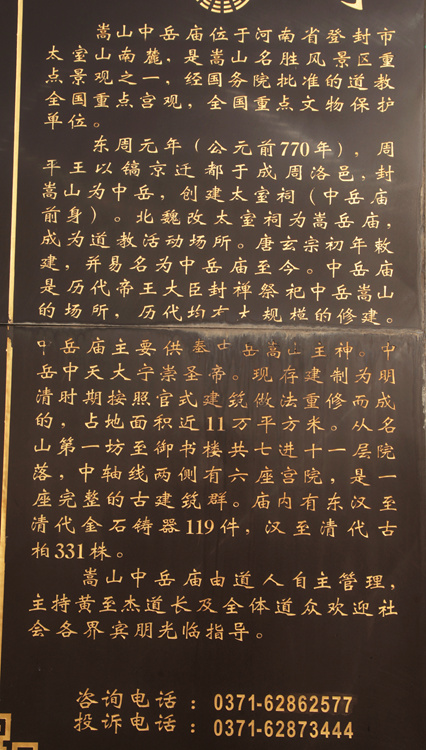 嵩山中岳庙位于河南省登封市
太室山南麓，是嵩山名胜风景区重
点景观之一，经国务院批准的道教
全国重点宫观，全国重点文物保护
单位。
东周元年（公元前770年），周
平王以镐京迁都于成周洛邑，封
嵩山为中岳，创建太室祠（中岳庙
前身）。北魏改太室祠为嵩岳庙，
成为道教活动场所。唐玄宗初年敕
建，并易名为中岳庙至今。中岳庙
是历代帝王大臣封禅祭祀中岳嵩山
的场所，历代均有大规模的修建。
中岳庙主要供奉中岳嵩山主神。中
岳中天大宁崇圣帝。现存建制为明
清时期按照官式建筑做法重修而成
的，占地面积近11万平方米。从名
山第一坊至御书楼共七进十一层院
落，中轴线两侧有六座宫院，是一
座完整的古建筑群。庙内有东汉至
清代金石铸器119件，汉至清代古
柏331株。
嵩山中岳庙由道人自主管理，
主持黄至杰道长及全体道众欢迎社
会各界宾朋光临指导。
咨询电话：0371-62862577
投诉电话：0371-62873444